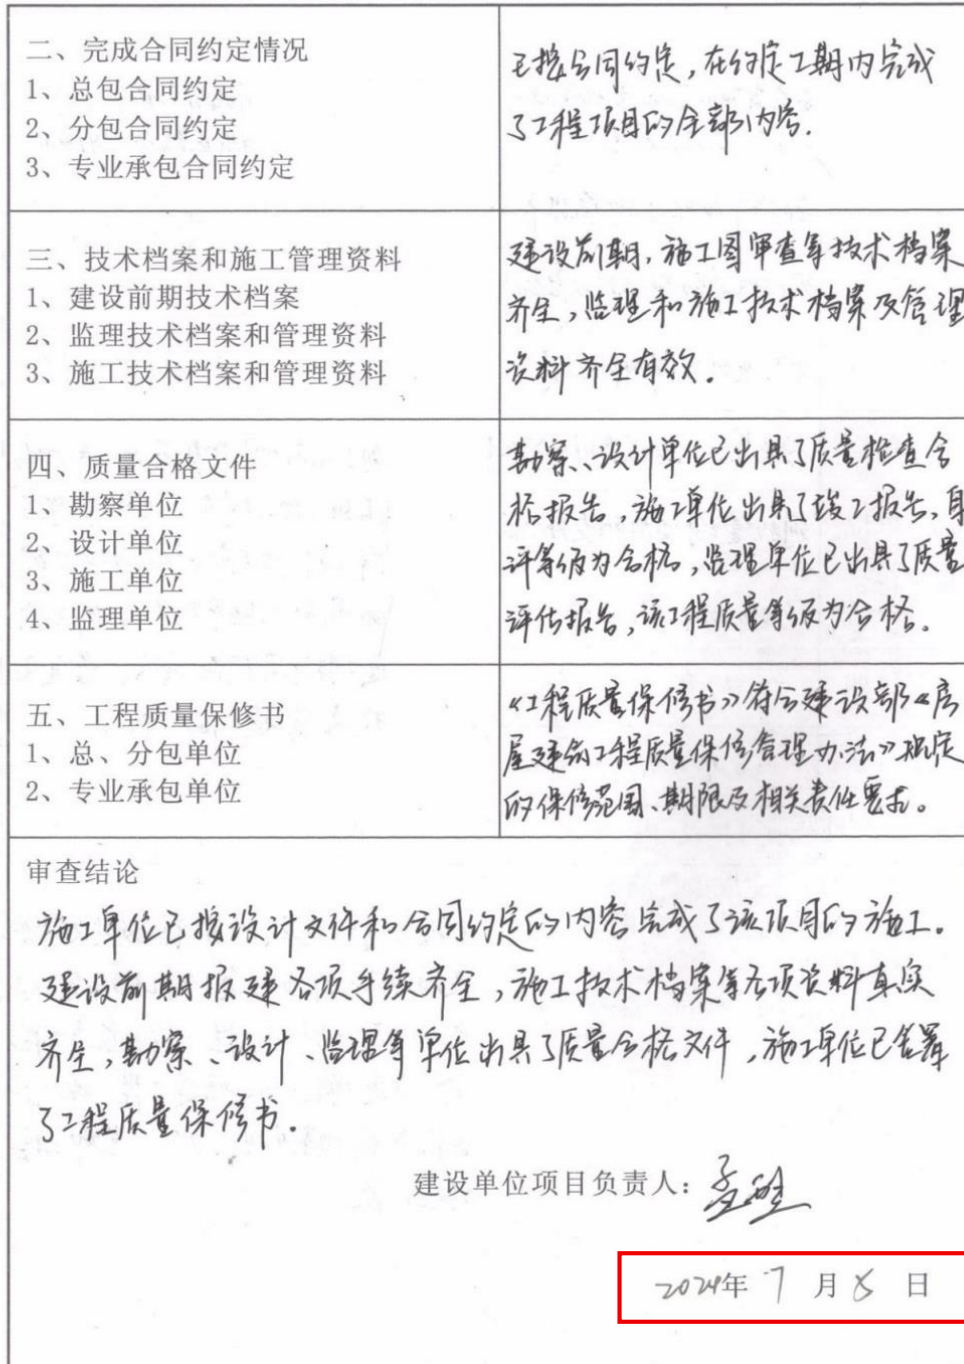 二、完成合同约定情况
1、总包合同约定
2、分包合同约定
3、专业承包合同约定
已按合同约定，在约定工期内完成
了工程项目的全部内容.
三、技术档案和施工管理资料
1、建设前期技术档案
2、监理技术档案和管理资料
3、施工技术档案和管理资料
建设前期，施工图审查等技术档案
齐全，监理和施工技术档案及管理
资料齐全有效.
四、质量合格文件
1、勘察单位
2、设计单位
3、施工单位
4、监理单位
勘察、设计单位已出具了质量检查合
格报告，施工单位出具了竣工报告，自
评等级为合格，监理单位已出具了质量
评估报告，该工程质量等级为合格。
五、工程质量保修书
1、总、分包单位
2、专业承包单位
《工程质量保修书》符合建设部《房
屋建筑工程质量保修管理办法》规定
的保修范围、期限及相关责任要求。
审查结论
施工单位已按设计文件和合同约定的内容完成了该项目的施工。
建设前期报建各项手续齐全，施工技术档案等各项资料真实
齐全，勘察、设计、监理等单位出具了质量合格文件，施工单位已签署
了工程质量保修书.
建设单位项目负责人：
2024年 7 月 8 日